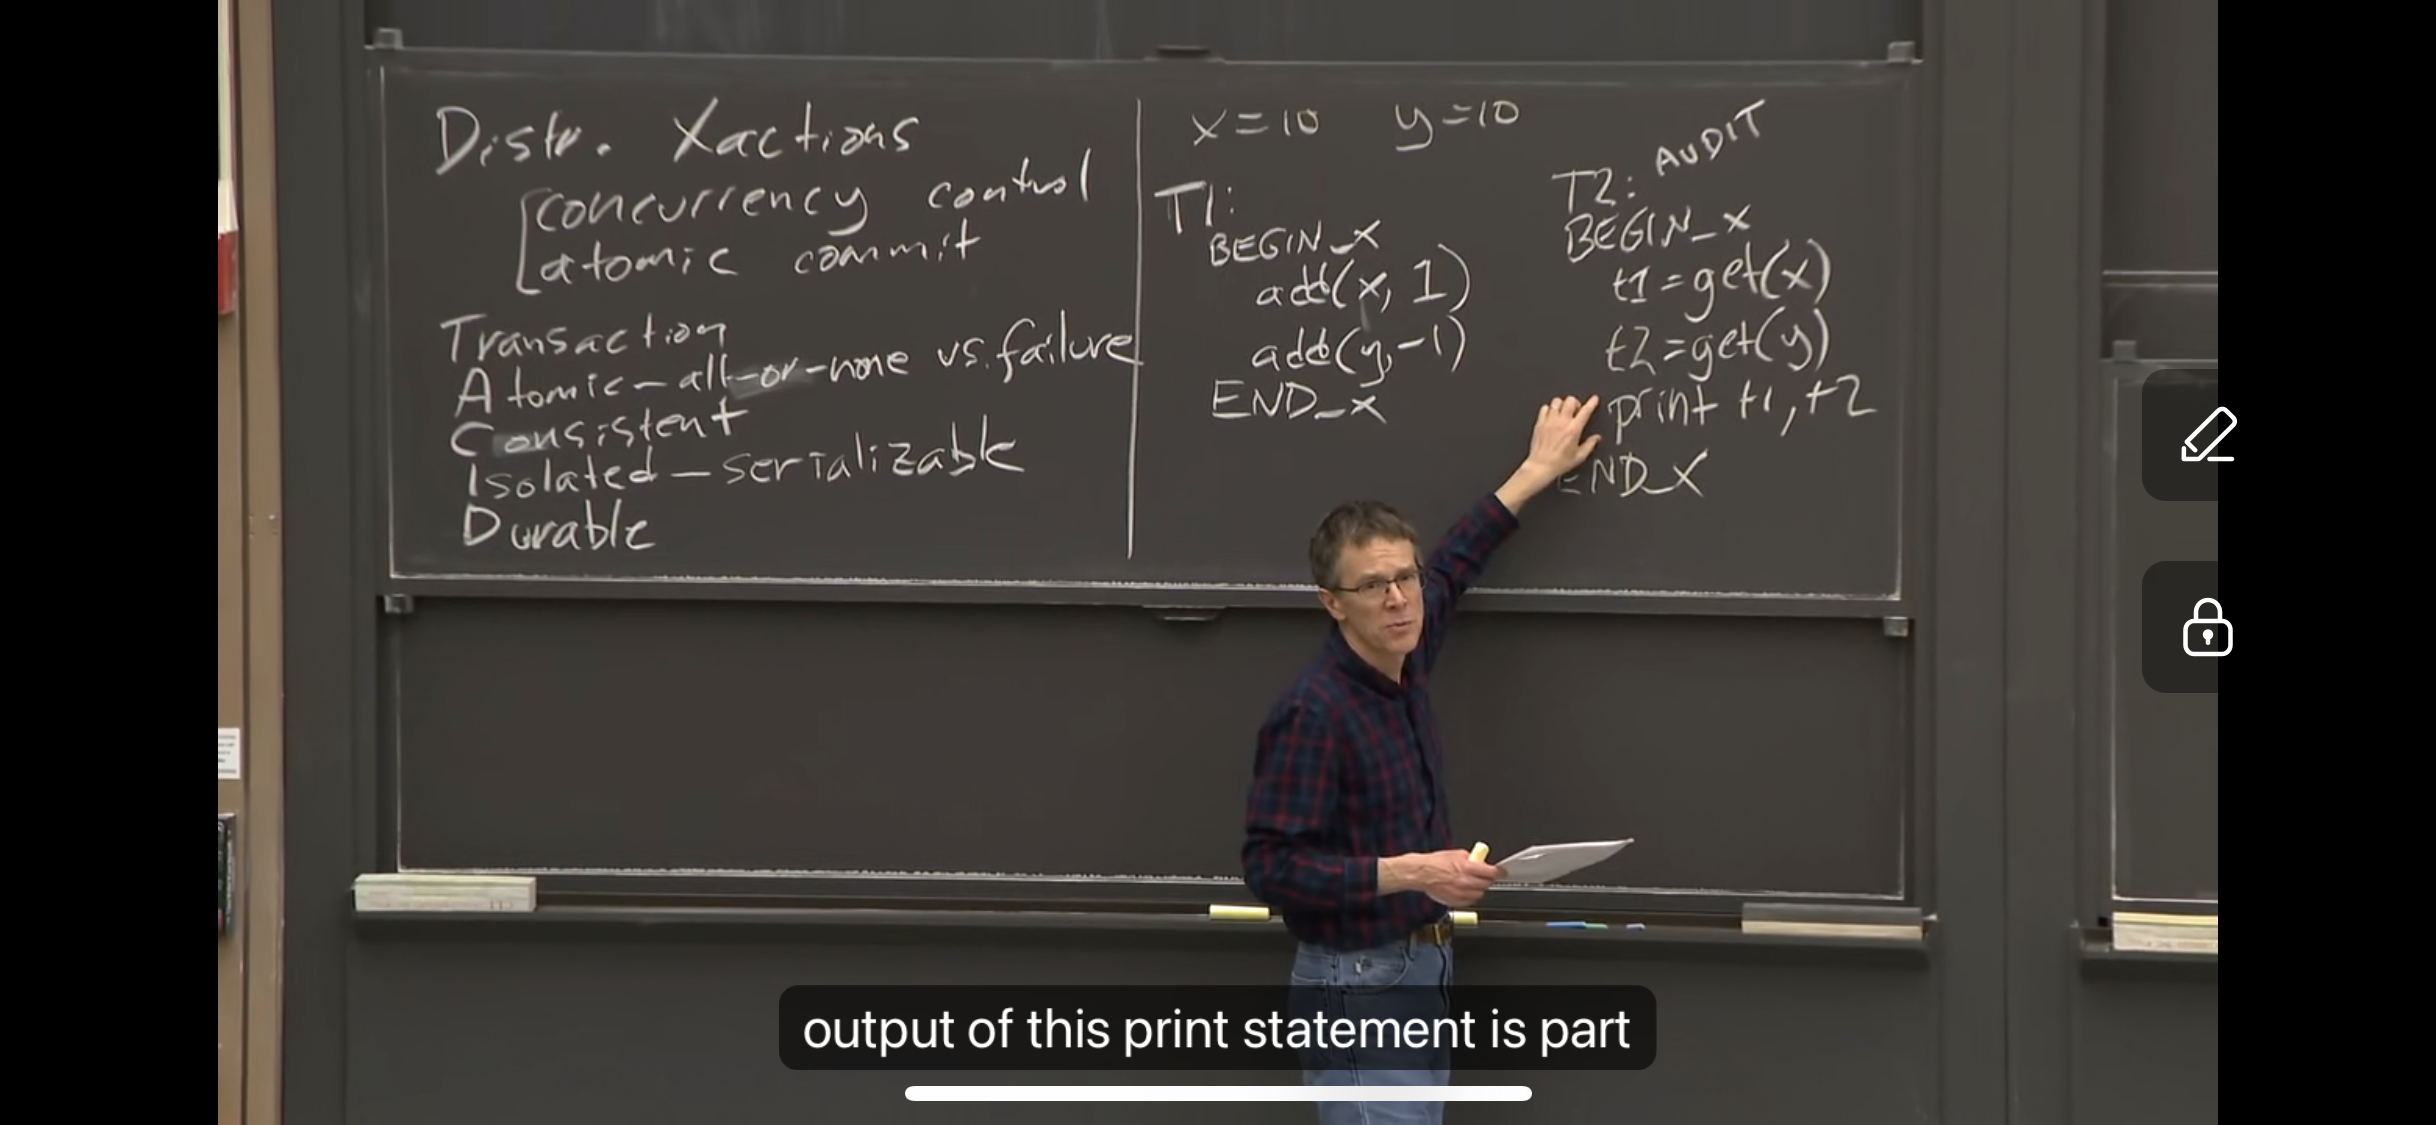 Distr. Xactions
concurrency control
atomic commit
Transaction
Atomic – all-or-none vs. failure
Consistent
Isolated – serializable
Durable
x=10 y=10
T1:
BEGIN_X
add(x, 1)
add(y, -1)
END_X
T2: AUDIT
BEGIN_X
t1=get(x)
t2=get(y)
print t1, t2
END_X
output of this print statement is part